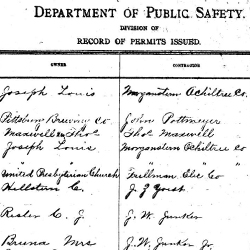 DEPARTMENT OF PUBLIC SAFETY.
DIVISION OF
RECORD OF PERMITS ISSUED.
OWNER CONTRACTOR
Joseph Louis Morganstern Achiltree Co.
Pittsburg Brewing Co John Pottmeyer
Maxwell Thos Thos Maxwell
Joseph Louis Morganstern Achiltree Co
" " "
United Presbyterian Church Co
J J Yost
C. J J. W. Junker
Mrs J. W. Junker Jr